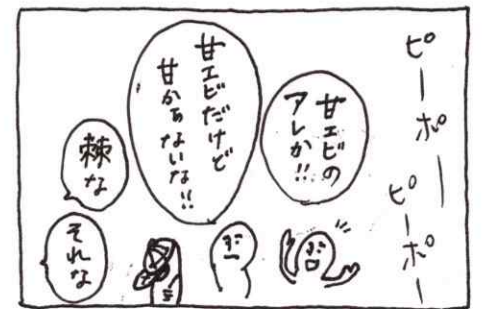 ピーポーピーポー
甘エビの
アレか!!
甘エビだけど
甘からないな!!
棘な
それな